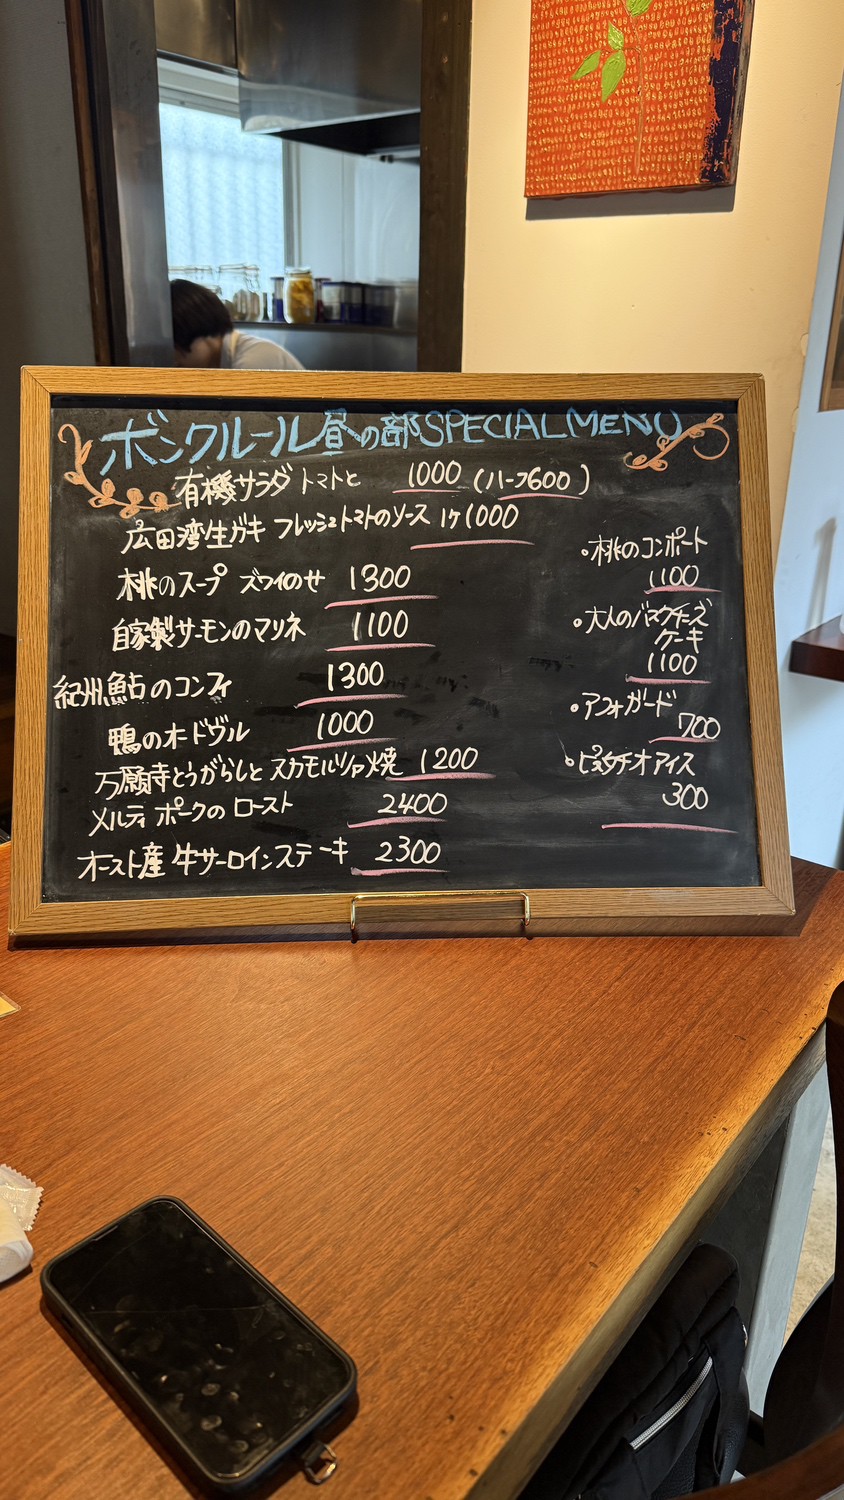 ボンクルール昼の部SPECIAL MENU
有機サラダ トマトと 1000 (ハーフ600)
広田湾生ガキ フレッシュトマトのソース 1ヶ1000
桃のスープ ズワイのせ 1300
自家製サーモンのマリネ 1100
紀州鮎のコンフィ 1300
鴨のオードヴル 1000
万願寺とうがらしと スカモルツァ焼 1200
メルティ ポークの ロースト 2400
オースト産 牛サーロインステーキ 2300
・桃のコンポート
1100
・大人のバスクチーズ
ケーキ
1100
・アフォガード
700
・ピスタチオアイス
300